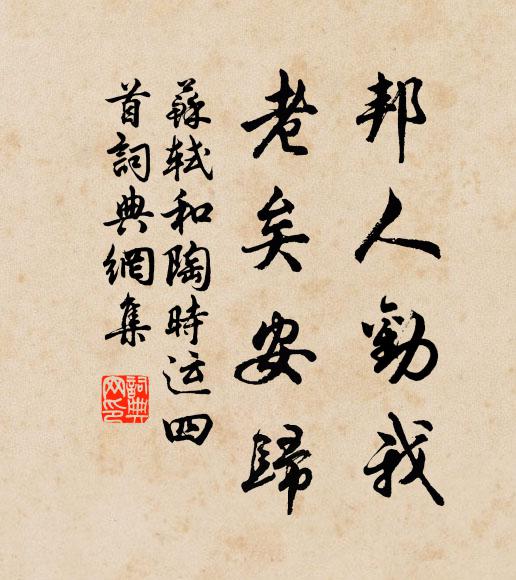 邦人勸我
老矣安歸
蘇軾和陶時运四
首詞典網集
詞典
网印